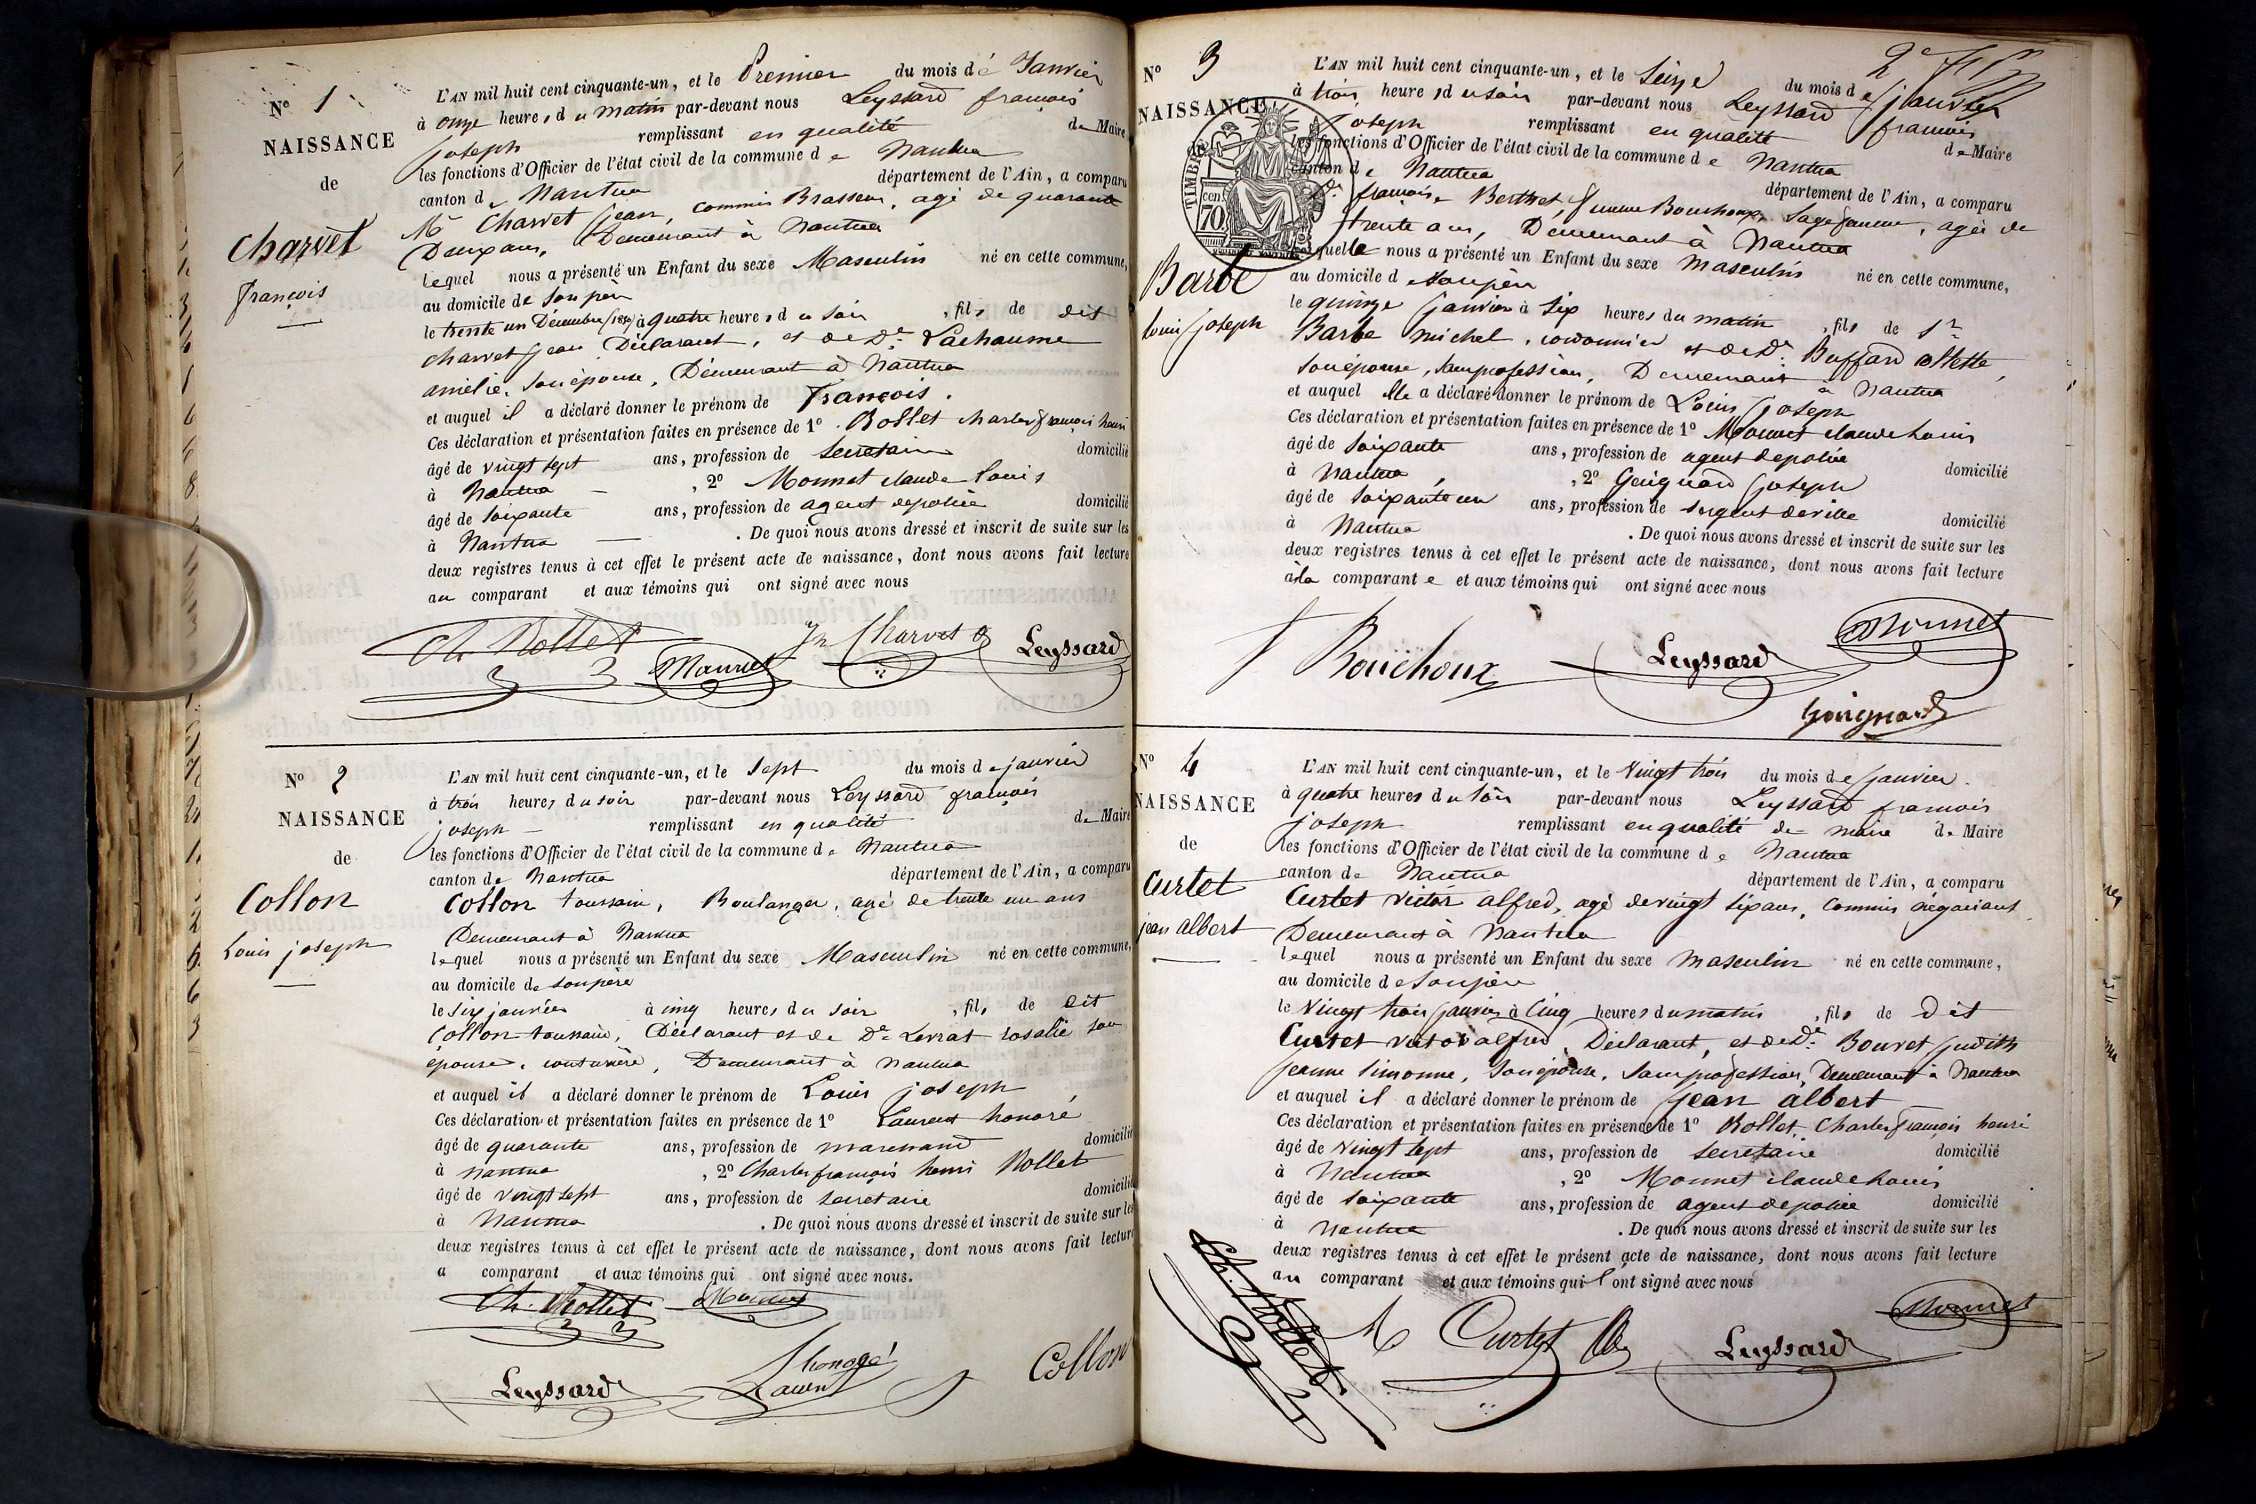 N° 1
NAISSANCE
de
Charvet
François
L'AN mil huit cent cinquante-un, et le Premier du mois de Janvier
à onze heures du matin par-devant nous Leyssard françois
joseph remplissant en qualité de Maire
les fonctions d'Officier de l'état civil de la commune de Nantua
canton de Nantua département de l'Ain, a comparu
Mr Charvet jean, commis Brasseur, agé de quarante
Deux ans, Demeurant à Nantua
lequel nous a présenté un Enfant du sexe Masculin né en cette commune,
au domicile de son père
le trente un Décembre (1850) à quatre heures du soir, fils de dit
charvet jean Déclarant, et de De Lachaume
amélie, son épouse, Demeurant à Nantua
et auquel il a déclaré donner le prénom de François.
Ces déclaration et présentation faites en présence de 1° Rollet charles françois henri
âgé de vingt sept ans, profession de secretaire domicilié
à Nantua, 2° Monnet claude louis
âgé de soixante ans, profession de agent de police domicilié
à Nantua. De quoi nous avons dressé et inscrit de suite sur les
deux registres tenus à cet effet le présent acte de naissance, dont nous avons fait lecture
au comparant et aux témoins qui ont signé avec nous
Ch Rollet Monnet Jn Charvet Leyssard
N° 2
NAISSANCE
de
Collon
Louis joseph
L'AN mil huit cent cinquante-un, et le sept du mois de janvier
à trois heures du soir par-devant nous Leyssard françois
joseph remplissant en qualité de Maire
les fonctions d'Officier de l'état civil de la commune de Nantua
canton de Nantua département de l'Ain, a comparu
Collon toussain, Boulanger, agé de trente un ans
Demeurant à Nantua
lequel nous a présenté un Enfant du sexe Masculin né en cette commune,
au domicile de son père
le six janvier à cinq heures du soir, fils de dit
Collon toussain, Déclarant et de De Levrat rosalie son
épouse, couturière, Demeurant à Nantua
et auquel il a déclaré donner le prénom de Louis joseph
Ces déclaration et présentation faites en présence de 1° Laurent honoré
âgé de quarante ans, profession de marchand domicilié
à Nantua, 2° Charles françois henri Rollet
âgé de vingt sept ans, profession de secretaire domicilié
à Nantua. De quoi nous avons dressé et inscrit de suite sur les
deux registres tenus à cet effet le présent acte de naissance, dont nous avons fait lecture
a comparant et aux témoins qui ont signé avec nous.
Ch. Rollet Monnet
Leyssard honoré Laurent Collon
2e
N° 3
NAISSANCE
TIMBRE
cen. 70
Barbe
louis joseph
L'AN mil huit cent cinquante-un, et le seize du mois de janvier
à trois heures du soir par-devant nous Leyssard françois
joseph remplissant en qualité de Maire
les fonctions d'Officier de l'état civil de la commune de Nantua
canton de Nantua département de l'Ain, a comparu
De françoise Berthet, femme Bouchoux, Sage femme, agée de
trente ans, Demeurant à Nantua
laquelle nous a présenté un Enfant du sexe masculin né en cette commune,
au domicile de son père
le quinze janvier à six heures du matin, fils de Sr
Barbe michel, cordonnier et de De Buffard ollette,
son épouse, sans profession, Demeurant à Nantua
et auquel elle a déclaré donner le prénom de Louis joseph
Ces déclaration et présentation faites en présence de 1° Monnet claude Louis
âgé de soixante ans, profession de agent de police
à Nantua, 2° Guignard joseph domicilié
âgé de soixante un ans, profession de sergent de ville
à Nantua domicilié. De quoi nous avons dressé et inscrit de suite sur les
deux registres tenus à cet effet le présent acte de naissance, dont nous avons fait lecture
à la comparante et aux témoins qui ont signé avec nous
f Bouchoux Leyssard Monnet
Guignard
N° 4
NAISSANCE
de
Curtet
jean albert
L'AN mil huit cent cinquante-un, et le Vingt trois du mois de janvier.
à quatre heures du soir par-devant nous Leyssard françois
joseph remplissant en qualité de maire de Maire
les fonctions d'Officier de l'état civil de la commune de Nantua
canton de Nantua département de l'Ain, a comparu
Curtet victor alfred, agé de vingt six ans, Commis négociant
Demeurant à Nantua
lequel nous a présenté un Enfant du sexe masculin né en cette commune,
au domicile de son père
le Vingt trois janvier à Cinq heures du matin, fils de dit
Curtet victor alfred, Déclarant, et de De Bouvet judith
jeanne simonne, son épouse, sans profession, Demeurant à Nantua
et auquel il a déclaré donner le prénom de jean albert
Ces déclaration et présentation faites en présence de 1° Rollet Charles françois henri
âgé de Vingt sept ans, profession de secretaire domicilié
à Nantua, 2° Monnet claude louis
âgé de soixante ans, profession de agent de police domicilié
à Nantua. De quoi nous avons dressé et inscrit de suite sur les
deux registres tenus à cet effet le présent acte de naissance, dont nous avons fait lecture
au comparant et aux témoins qui l'ont signé avec nous
Ch. Rollet Curtet Leyssard Monnet